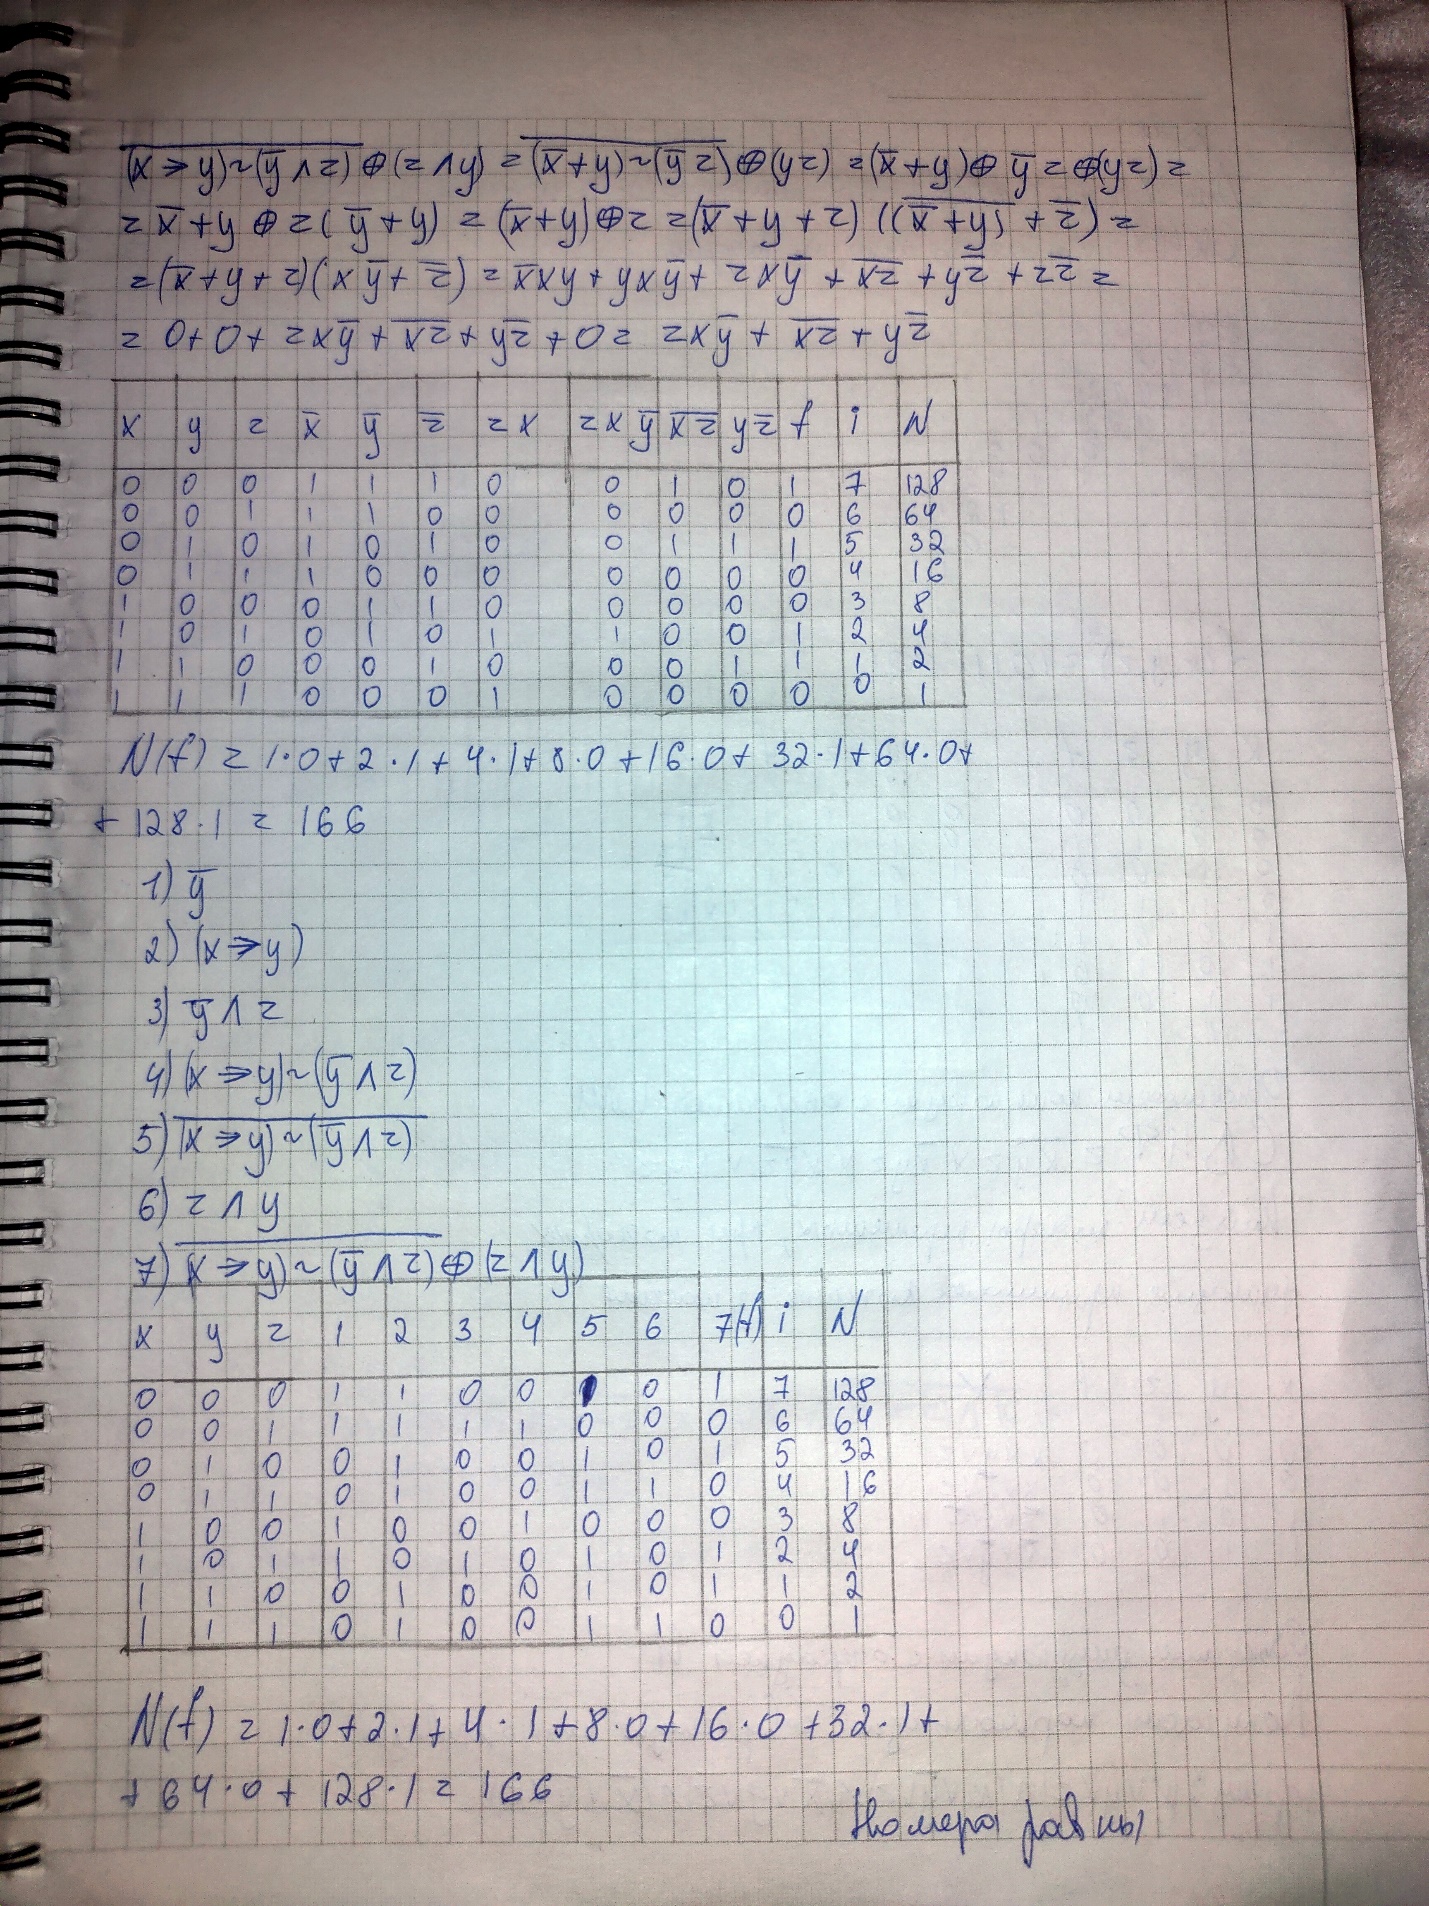 (x⇒y)~(y̅∧z)̅ ⊕(z∧y) = (x̅+y)~(y̅z)̅ ⊕(yz) = (x̅+y)⊕ y̅z⊕(yz) =
= x̅+y ⊕ z(y̅+y) = (x̅+y)⊕z = (x̅+y+z)((x̅+y)̅ + z̅) =
= (x̅+y+z)(xy̅+z̅) = x̅xy+yxy̅+ zxy̅ + x̅z̅ + yz̅ + zz̅ =
= 0+0+ zxy̅ + x̅z̅ + yz̅ + 0 = zxy̅ + x̅z̅ + yz̅
x y z x̅ y̅ z̅ zx zxy̅ x̅z̅ yz̅ f i N
0 0 0 1 1 1 0 0 1 0 1 7 128
0 0 1 1 1 0 0 0 0 0 0 6 64
0 1 0 1 0 1 0 0 1 1 1 5 32
0 1 1 1 0 0 0 0 0 0 0 4 16
1 0 0 0 1 1 0 0 0 0 0 3 8
1 0 1 0 1 0 1 1 0 0 1 2 4
1 1 0 0 0 1 0 0 0 1 1 1 2
1 1 1 0 0 0 1 0 0 0 0 0 1
N(f) = 1·0+2·1+4·1+8·0+16·0+32·1+64·0+
+ 128·1 = 166
1) y̅
2) (x⇒y)
3) y̅∧z
4) (x⇒y)~(y̅∧z)
5) (x⇒y)~(y̅∧z)̅
6) z∧y
7) (x⇒y)~(y̅∧z)̅ ⊕(z∧y)
x y z 1 2 3 4 5 6 7(f) i N
0 0 0 1 1 0 0 1 0 1 7 128
0 0 1 1 1 1 1 0 0 0 6 64
0 1 0 0 1 0 0 1 0 1 5 32
0 1 1 0 1 0 0 1 1 0 4 16
1 0 0 1 0 0 1 0 0 0 3 8
1 0 1 1 0 1 0 1 0 1 2 4
1 1 0 0 1 0 0 1 0 1 1 2
1 1 1 0 1 0 0 1 1 0 0 1
N(f) = 1·0+2·1+4·1+8·0+16·0+32·1+
+ 64·0 + 128·1 = 166
Номера равны